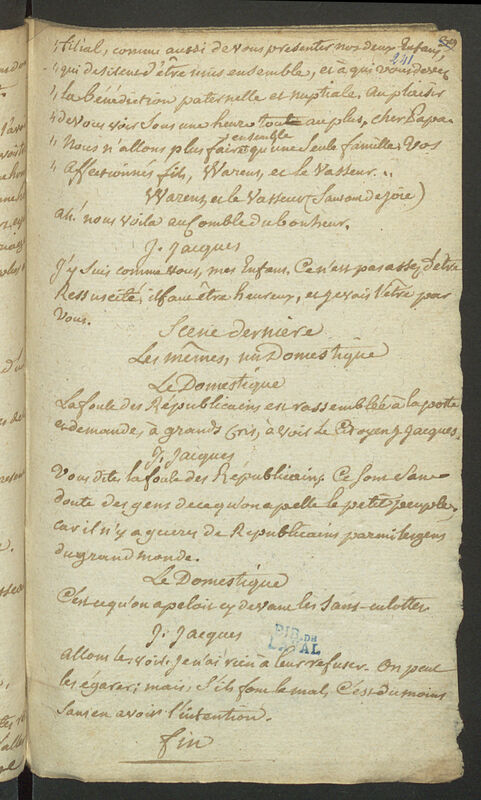 89
241
" filial, comme aussi de vous presenter nos deux Enfans,
" qui desirent d'être unis ensemble, et à qui vous devez
" la bénédiction paternelle et nuptiale. Au plaisir
" de vous voir sous une heure tout au plus, cher Papa.
" Nous n'allons plus faire ensemble qu'une seule famille. Vos
" affectionnés fils, Warens, et le Vasseur...
Warens, et le Vasseur (Sautant de joie)
Ah! nous voila au Comble du bonheur.
J. Jacques
J'y suis comme vous, mes Enfans. Ce n'est pas assez d'être
Ressuscité, il faut être heureux, et je vais l'être par
Vous.
Scene dernière
Les mêmes, un Domestique
Le Domestique
La foule des Républicains est rassemblée à la porte
et demande, à grands Cris, à voir le Citoyen J. Jacques.
J. Jacques
Vous dites la foule des Républicains. Ce sont sans
doute des gens de ce qu'on apelle le petit peuple,
car il n'y a gueres de Republicains parmi les gens
du grand monde.
Le Domestique
C'est ce qu'on apeloit cy devant les sans-culottes.
J. Jacques
Allons les voir. Je n'ai rien à leur refuser. On peut
les egarer; mais, s'ils font le mal, C'est du moins
sans en avoir l'intention.
fin
BIB. DE
LAVAL